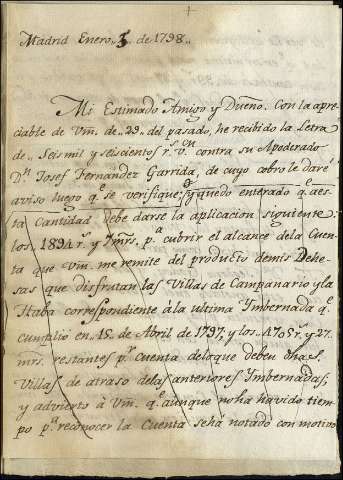 Madrid Enero 3 de 1798.
Mi Estimado Amigo y Dueño. Con la apre-
ciable de Vm. de 29 del pasado, he recibido la Letra
de Seis mil y seiscientos rs. vn. contra su Apoderado
Dn. Josef Fernandez Garrida, de cuyo cobro le daré
aviso luego qe. se verifique; y quedo enterado qe. a es-
ta Cantidad debe darse la aplicacion siguiente:
los 1894 rs. y 7 mrs. pa. cubrir el alcance dela Cuen
ta que Vm. me remite del producto demis Dehe-
sas que disfrutan las Villas de Campanario y la
Haba correspondiente á la ultima Ymbernada qe.
cumplió en 15 de Abril de 1797, y los 4705 rs. y 27
mrs. restantes pr. Cuenta deloque deben dhas.
Villas de atraso delas anteriores Ymbernadas;
y advierto á Vm. qe. aunque no ha havido tiem-
po pa. reconocer la Cuenta se há notado con motivo